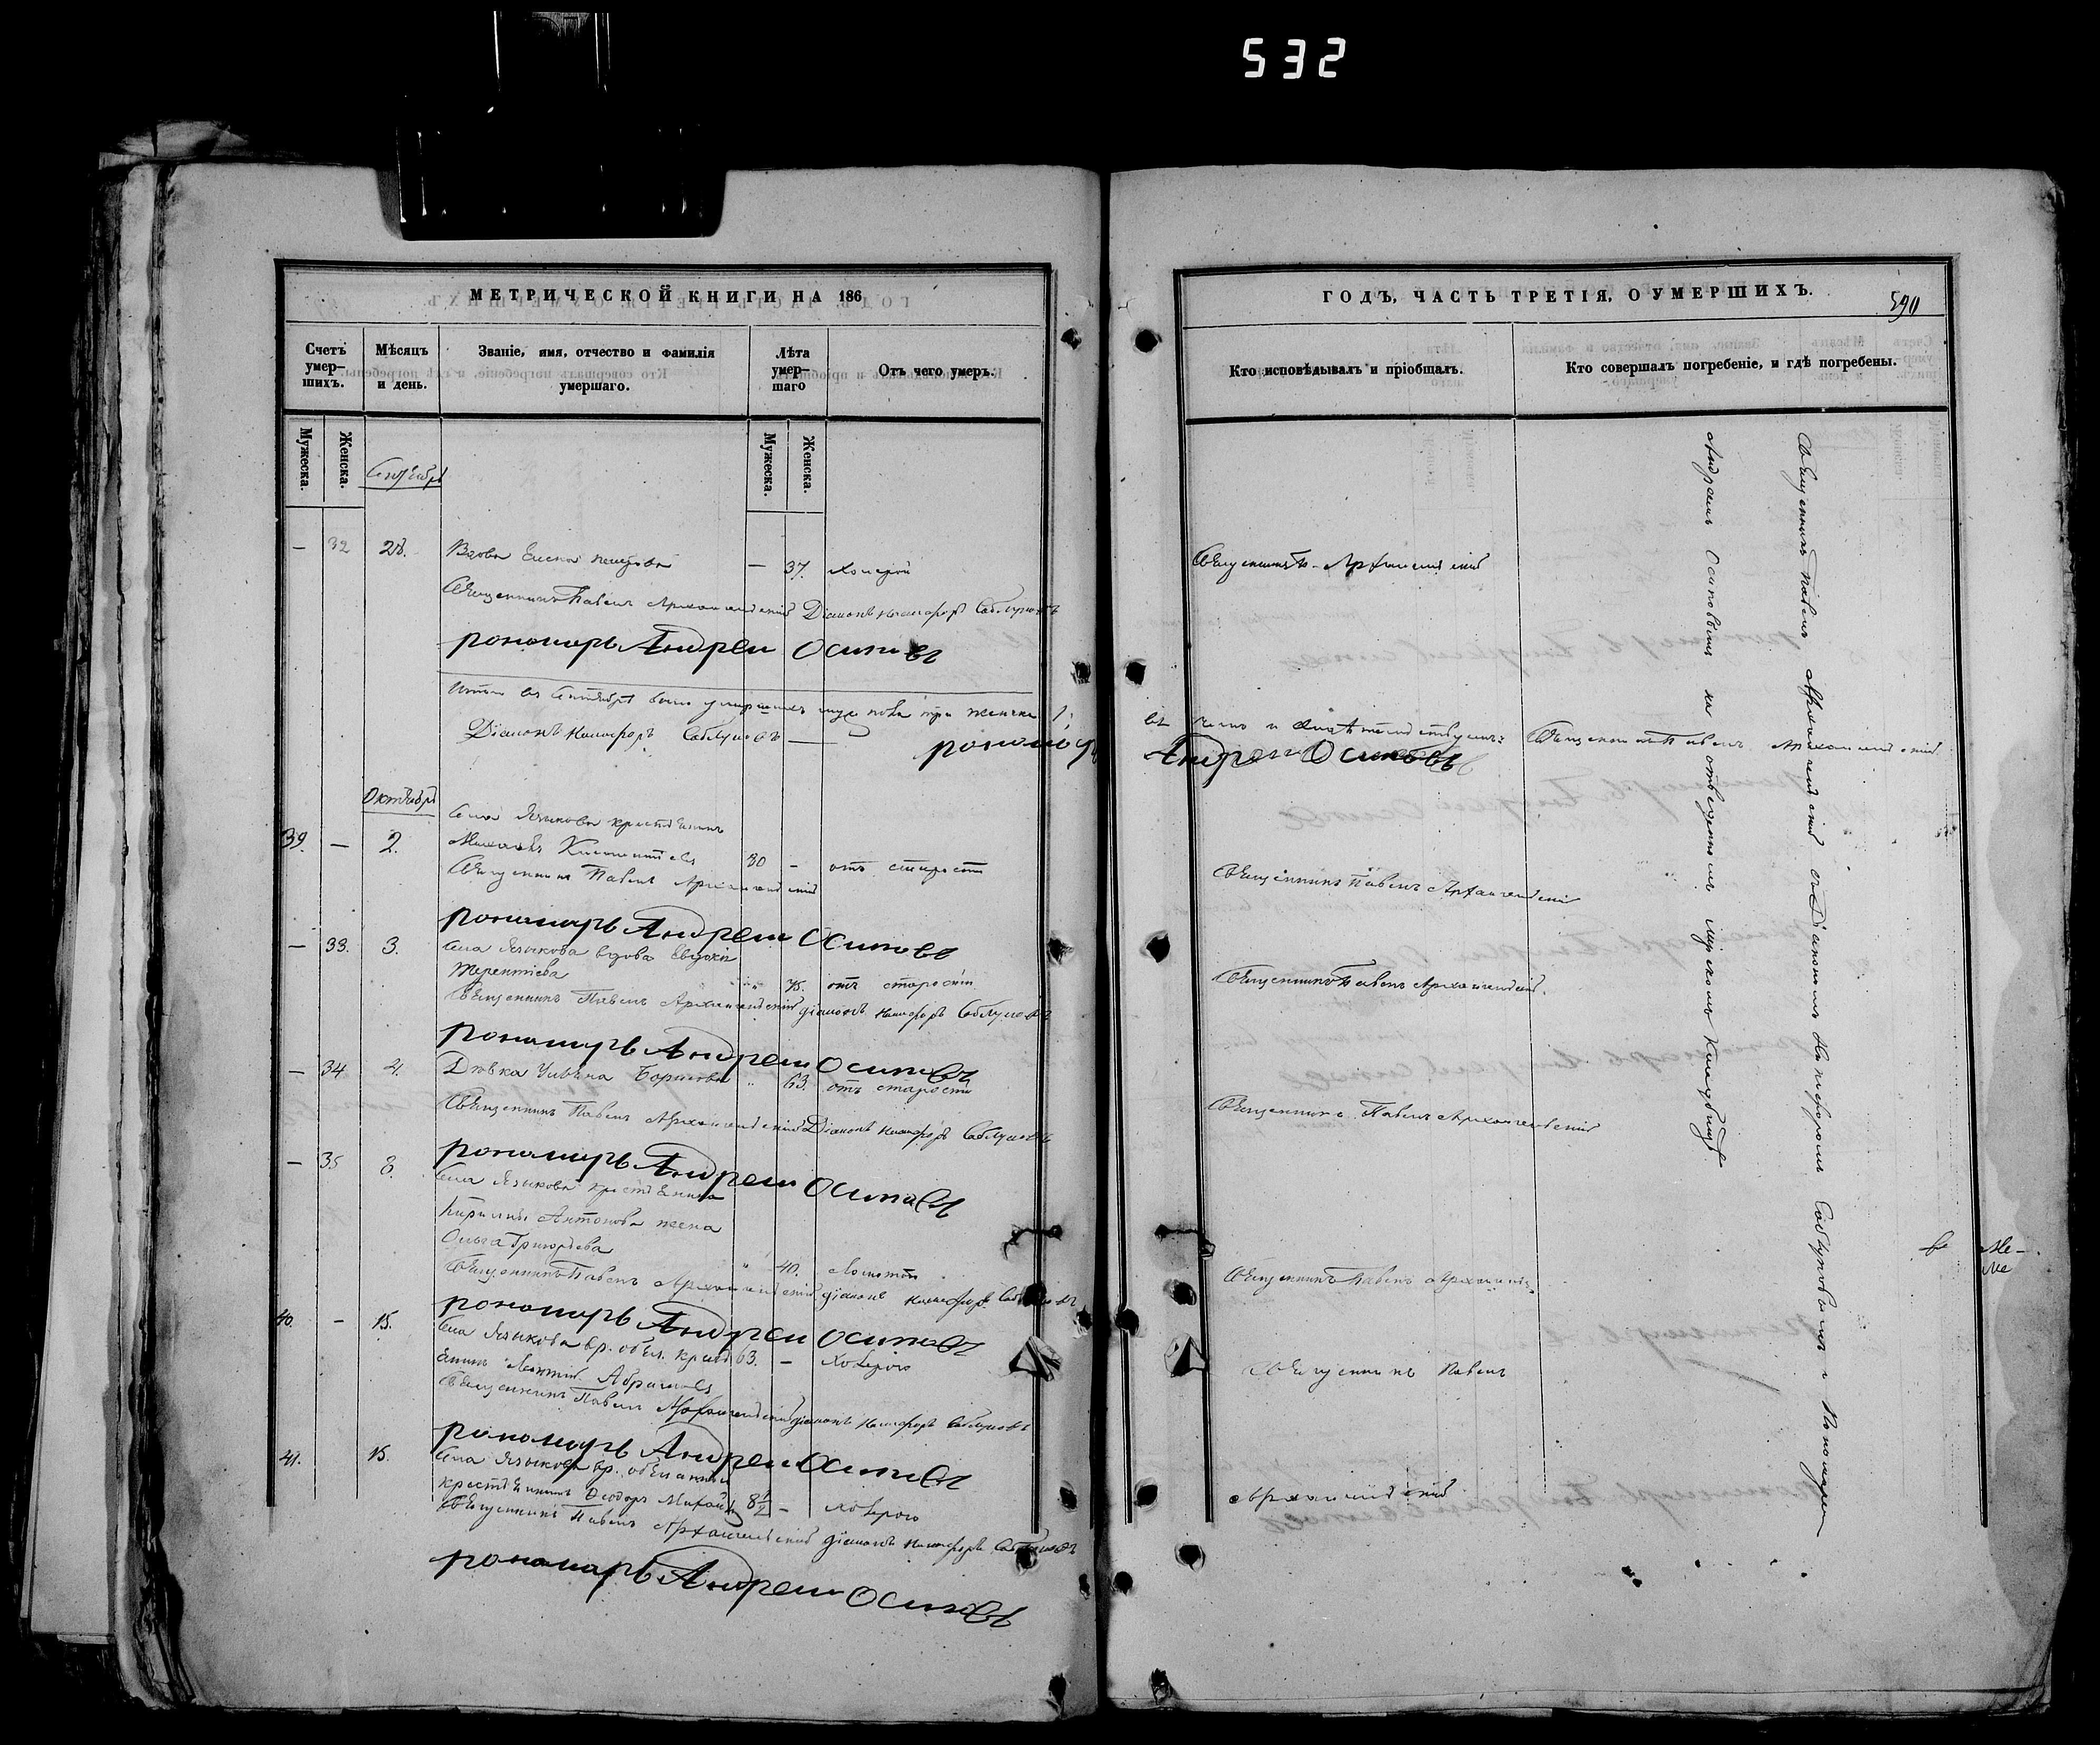 532
МЕТРИЧЕСКОЙ КНИГИ НА 186
Счетъ умер-шихъ.
Мѣсяцъ и день.
Званіе, имя, отчество и фамилія умершаго.
Лѣта умер-шаго
Отъ чего умеръ.
Мужеска.
Женска.
Мужеска.
Женска.
Сентябрь
— 32 28. Вдова Елена — 37. холерой
Священникъ Павелъ Архангельскій Діаконъ Никифоръ Саблуковъ
пономарь Андрей Осиповъ
Итого въ Сентябрѣ было умершихъ мужеска пола три женска 1;
Діаконъ Никифоръ Саблуковъ — пономарь
Октябрь
Села Языкова крестьянинъ
39. — 2. Михаилъ 80 — отъ старости
Священникъ Павелъ Архангельскій
пономарь Андрей Осиповъ
— 33. 3. Села Языкова вдова Евдокія
Терентіева 75. отъ старости
Священникъ Павелъ Архангельскій діаконъ Никифоръ Саблуковъ
пономарь Андрей Осиповъ
— 34 4. Дѣвка Ульяна Борисова " 63. отъ старости
Священникъ Павелъ Архангельскій Діаконъ Никифоръ Саблуковъ
пономарь Андрей Осиповъ
— 35 8. Села Языкова крестьянина
Кирилы Антонова жена
Ольга Григорьева
" 40.
Священникъ Павелъ Архангельскій діаконъ Никифоръ Саблуковъ
пономарь Андрей Осиповъ
40. — 15. Села Языкова вр. обяз. крест
янинъ Леонтій Абрамовъ 63. — холерою
Священникъ Павелъ Архангельскій діаконъ Никифоръ Саблуковъ
пономарь Андрей Осиповъ
41. 15. Села Языкова вр. обязанный
крестьянинъ Ѳеодоръ 8½ — холерою
Священникъ Павелъ Архангельскій діаконъ Никифоръ Саблуковъ
пономарь Андрей Осиповъ
ГОДЪ, ЧАСТЬ ТРЕТІЯ, О УМЕРШИХЪ.
590
Кто исповѣдывалъ и пріобщалъ.
Кто совершалъ погребеніе, и гдѣ погребены.
Священникъ П. Архангельскій
въ чемъ и свидѣтельствуемъ: Священникъ Павелъ Архангельскій
Андрей Осиповъ
Священникъ Павелъ Архангельскій
Священникъ Павелъ Архангельскій.
Священникъ Павелъ Архангельскій
Священникъ Павелъ
Священникъ Павелъ
Архангельскій
Священникъ Павелъ Архангельскій съ Діакономъ Никифоромъ Саблуковымъ и Пономаремъ
Андреемъ Осиповымъ на отведенномъ мірскомъ Кладбищѣ